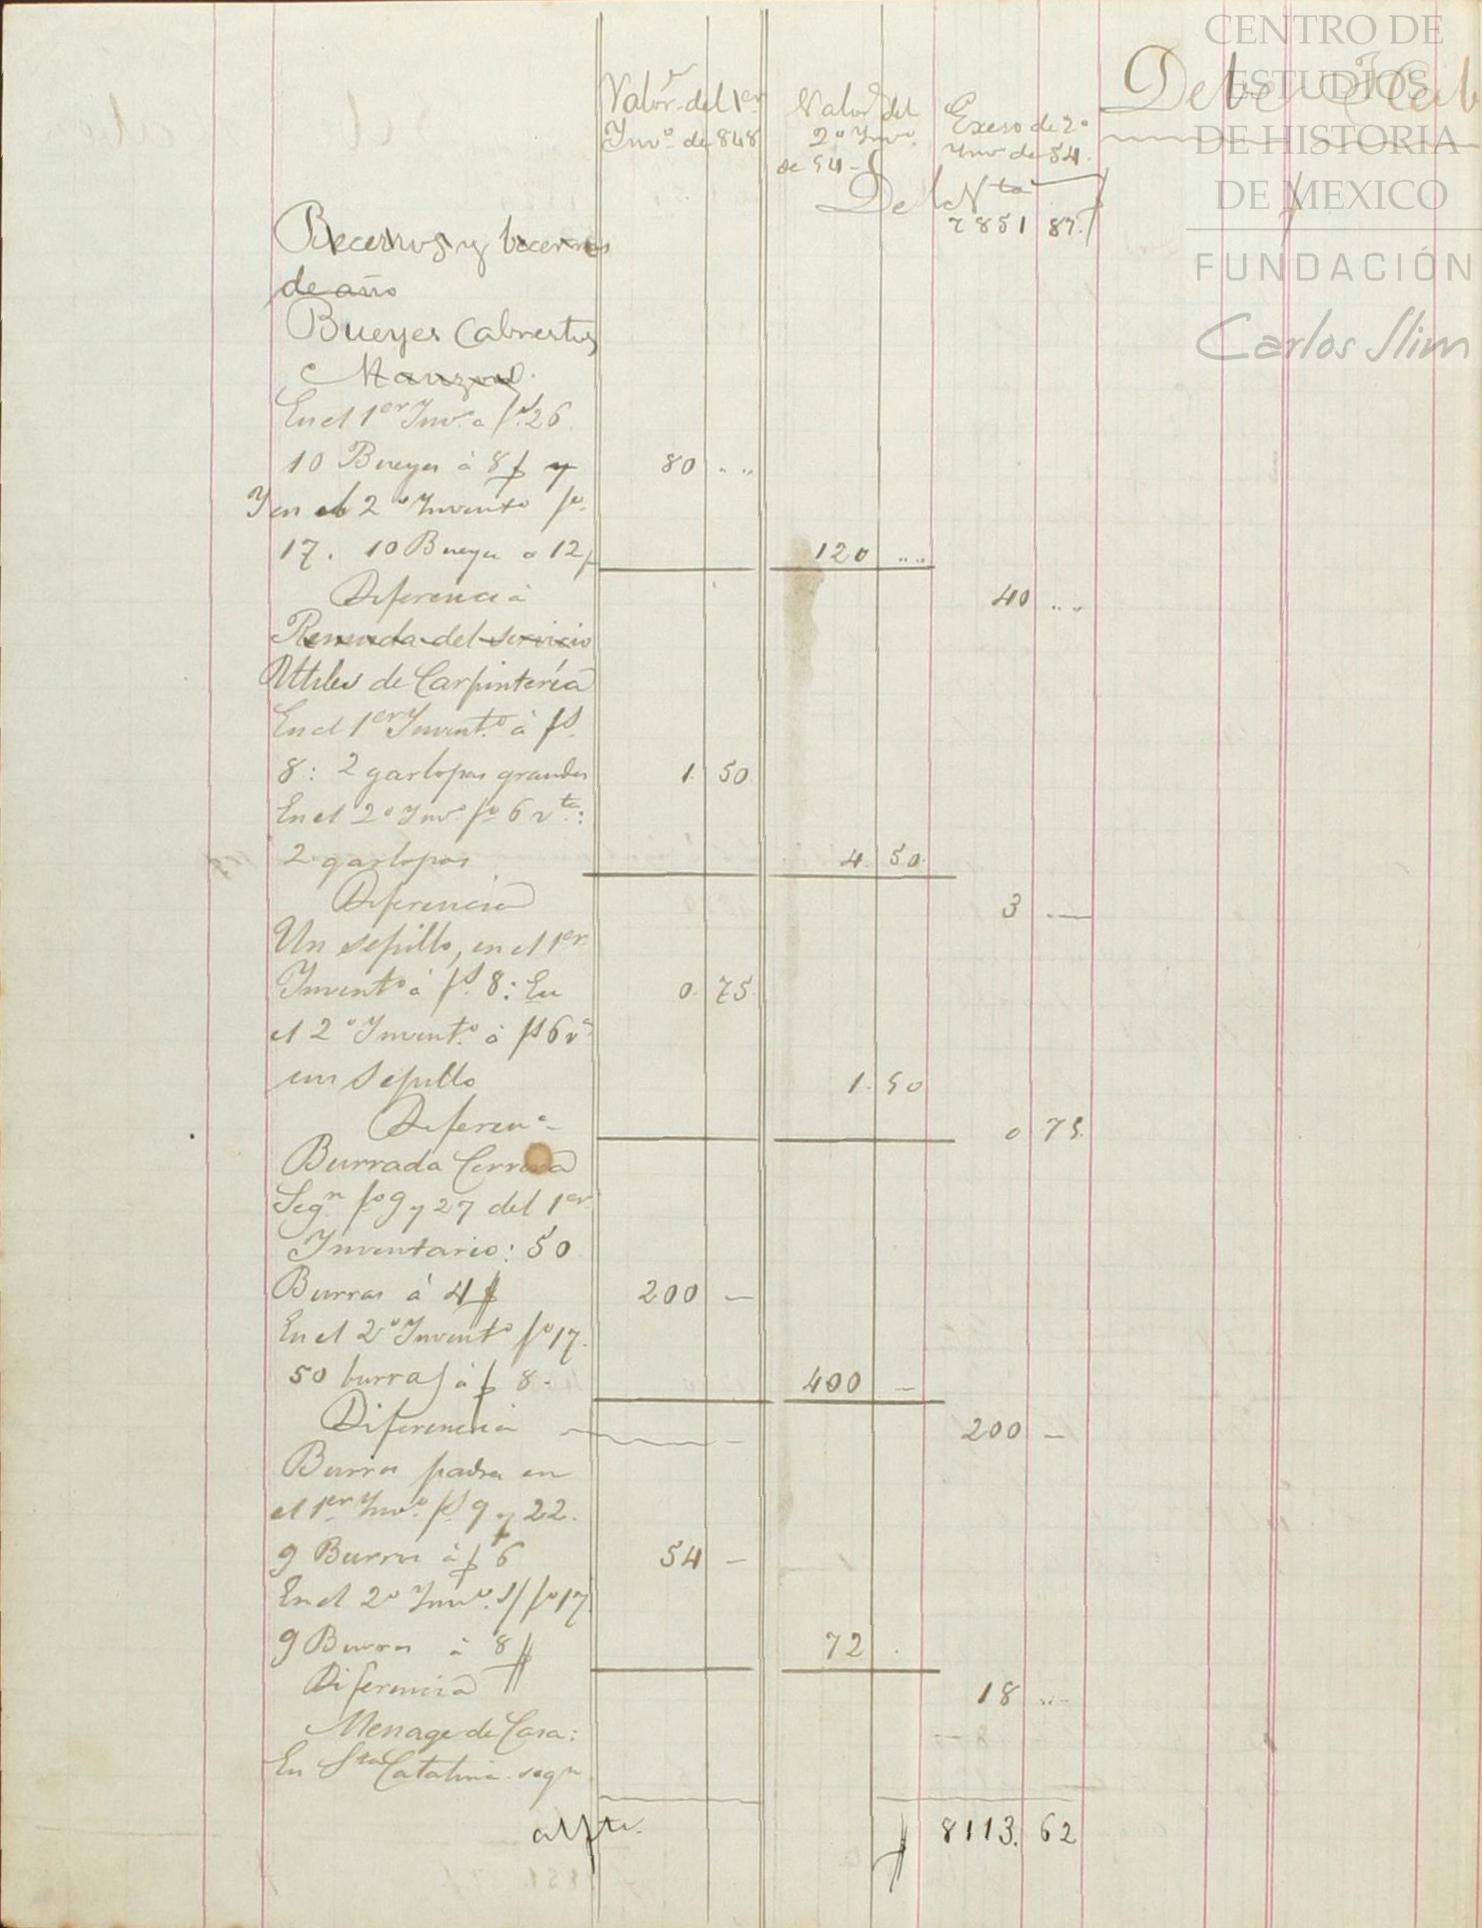 CENTRO DE
ESTUDIOS
DE HISTORIA
DE MEXICO
FUNDACIÓN
Carlos Slim
Debe Hab
Valor del 1er Invo. de 848
Valor del 2o Invo. de 54
Exeso de 2o Inv de 54.
Del Nta
7851 87.
Becerros y becerras
de año
Bueyes Cabrestos
Manzos
En el 1er Inv. a fs. 26.
10 Bueyes à 8$ y 80 " "
Y en el 2o Invento fo.
17. 10 Bueyes a 12$ 120 " "
Diferencia 40 " "
Remuda del servicio
Utiles de Carpintería
En el 1er Invento. à fs.
8: 2 garlopas grandes 1. 50
En el 2o Invo. fo 6 vta:
2 garlopas 4. 50.
Diferencia 3 —
Un sepillo, en el 1er
Invento à fs. 8: En 0. 75
el 2o Invento. à fs 6 va
un Sepillo 1. 50
Diferena 0 75.
Burrada Cerrera
Segn fo 9 y 27 del 1er
Inventario: 50
Burras á 4$ 200 —
En el 2o Invento fo 17.
50 burras à $ 8. 400 —
Diferencia 200 —
Burros padres en
el 1er Invo. fs. 9 y 22.
9 Burros à $ 6 54 —
En el 2o Invo. s/ fo 17
9 Burros à 8$ 72 .
Diferencia 18 " "
Menage de Casa:
En Sta Catalina segn
alfte. $ 8113. 62